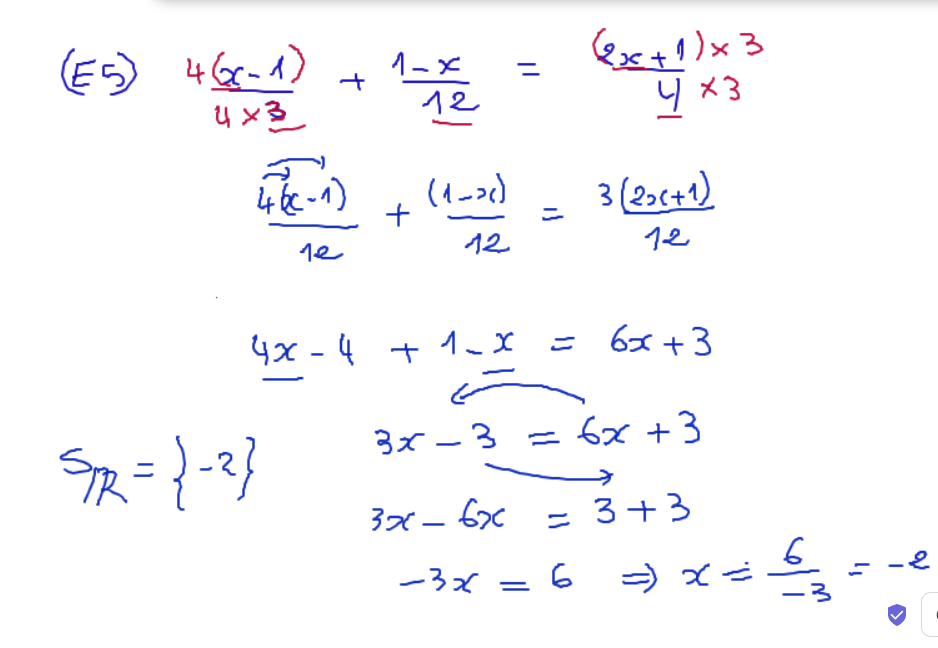 (E5) 4(x-1)/4×3 + 1-x/12 = (2x+1)×3/4×3
4(x-1)/12 + (1-x)/12 = 3(2x+1)/12
4x - 4 + 1 - x = 6x + 3
3x - 3 = 6x + 3
S/R = {-2}
3x - 6x = 3 + 3
-3x = 6 ⇒ x = 6/-3 = -2